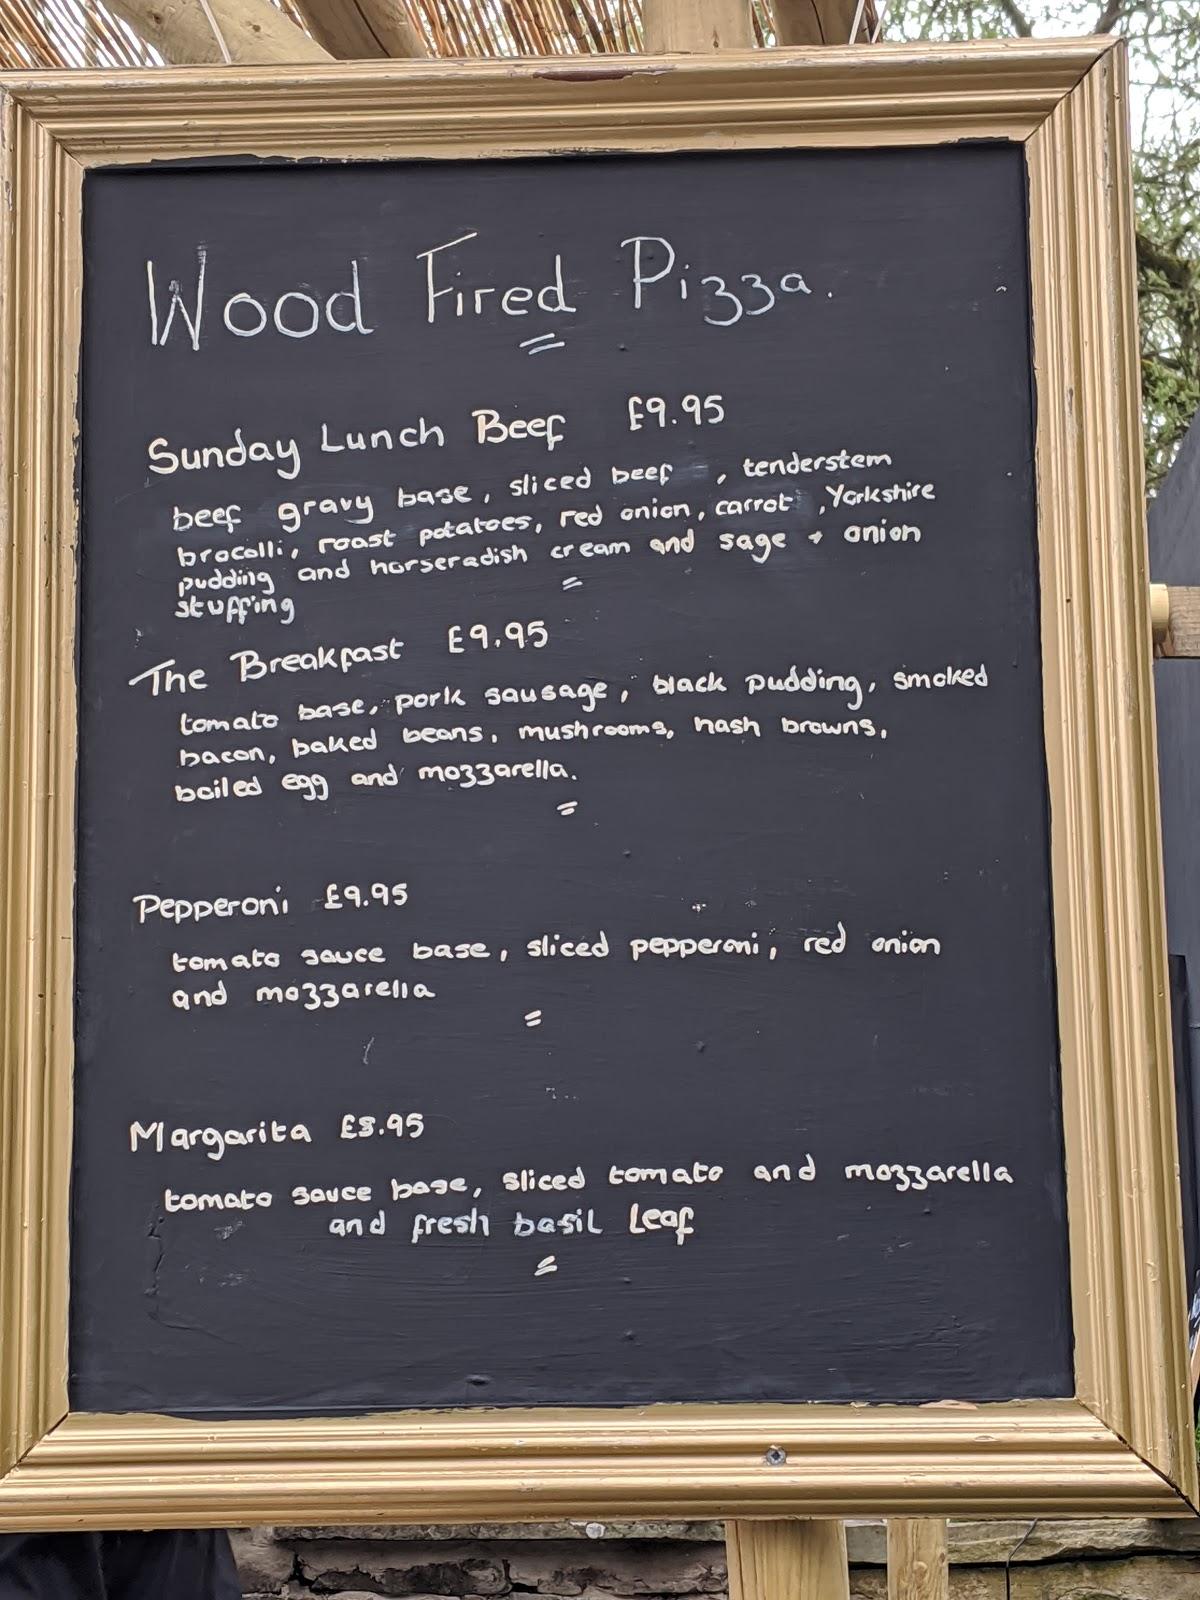 Wood Fired Pizza.
Sunday Lunch Beef £9.95
beef gravy base, sliced beef , tenderstem
brocolli, roast potatoes, red onion, carrot , Yorkshire
pudding and horseradish cream and sage + onion
stuffing
The Breakfast £9.95
tomato base, pork sausage, black pudding, smoked
bacon, baked beans, mushrooms, hash browns,
boiled egg and mozzarella.
Pepperoni £9.95
tomato sauce base, sliced pepperoni, red onion
and mozzarella
Margarita £8.95
tomato sauce base, sliced tomato and mozzarella
and fresh basil leaf